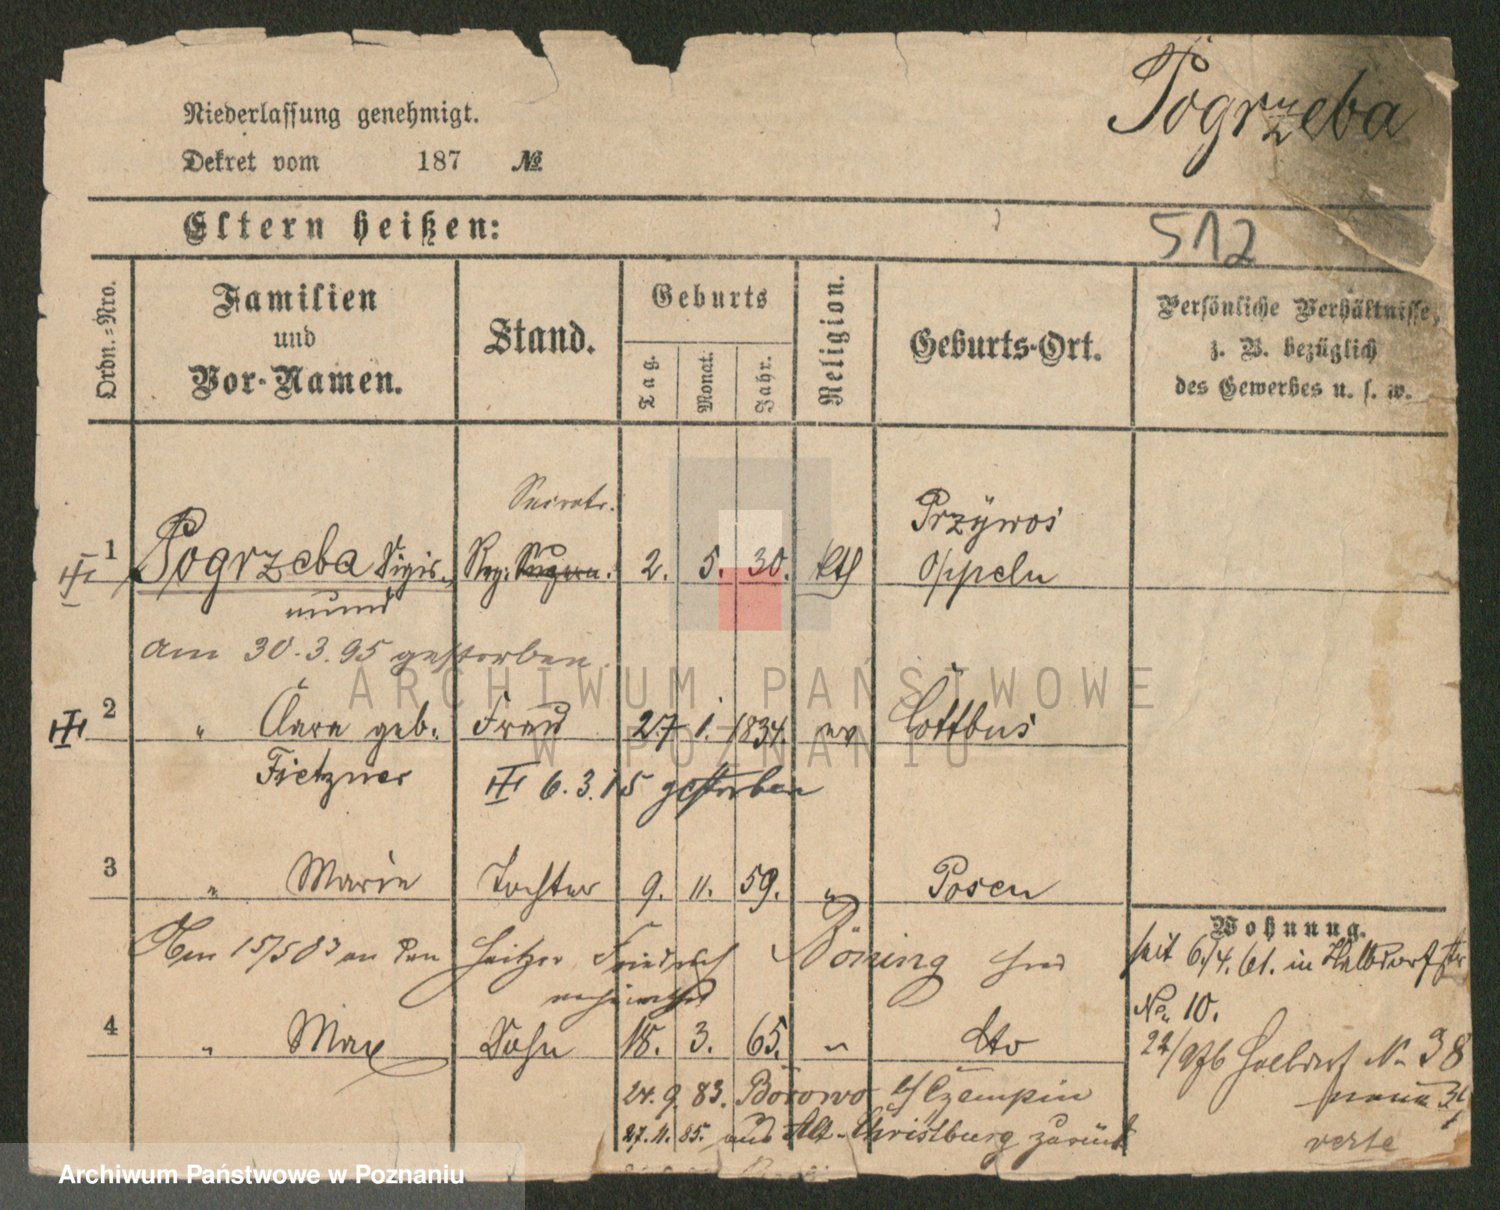 Pogrzeba
Niederlassung genehmigt.
Dekret vom 187 №
Eltern heißen:
512
Ordn.-Nro.
Familien
und
Vor-Namen.
Stand.
Geburts
Tag.
Monat.
Jahr.
Religion.
Geburts-Ort.
Persönliche Verhältnisse,
z. B. bezüglich
des Gewerbes u. s. w.
Secretr.
1 Pogrzeba Sigis- Reg. 2. 5. 30. kth Przÿwos
mund Oppeln
am 30.3.95 gestorben
2 " Clara geb. Frau 27 1. 1834. ev Cottbus
Fietzner 6.3.15 gestorben
3 " Marie Tochter 9. 11. 59. " Posen
Am 15/5 83 an den Friedrich Böning
verheirathet
4 " Max Sohn 18. 3. 65. " dto
24.9.83. Borowo b/ Czempin
27.11.85. aus Alt-Christburg zurück
Wohnung.
seit 6./4. 61. in Halbdorfstr
No 10.
22/ Halbdorf No 38
verte
ARCHIWUM PAŃSTWOWE
W POZNANIU
Archiwum Państwowe w Poznaniu